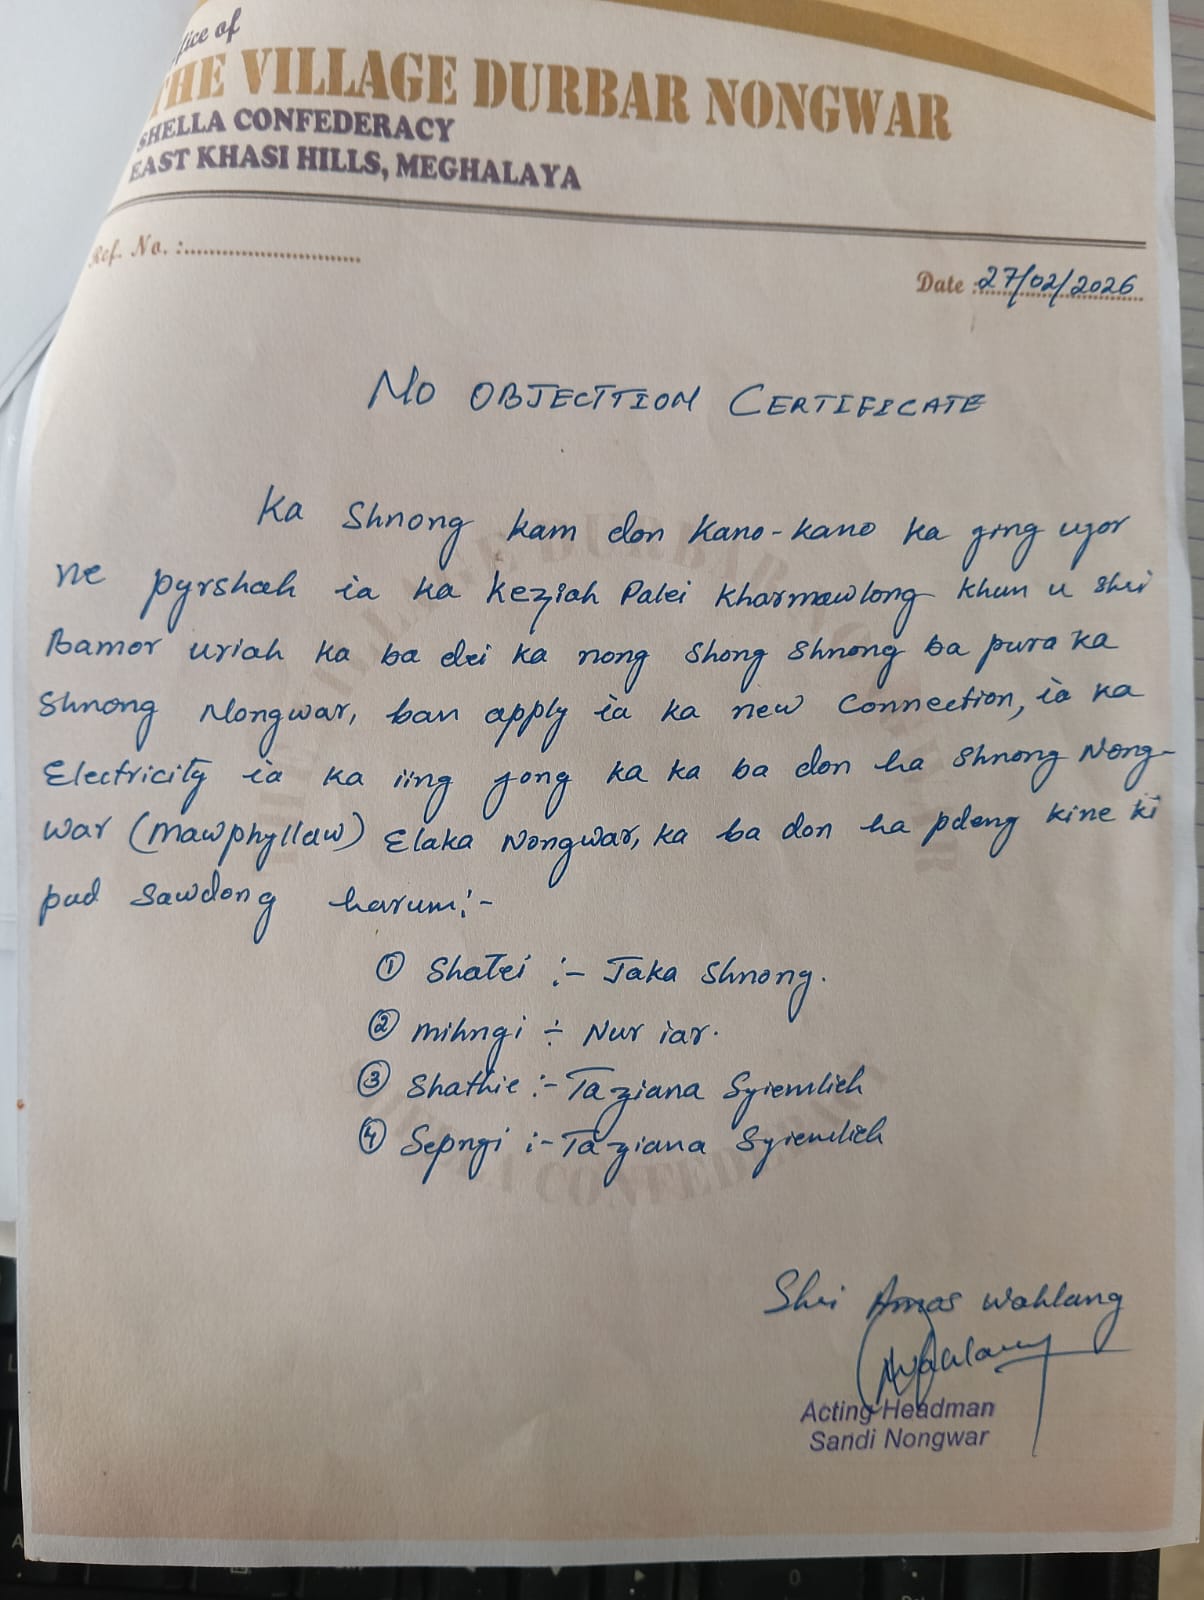 fice of
THE VILLAGE DURBAR NONGWAR
SHELLA CONFEDERACY
EAST KHASI HILLS, MEGHALAYA
Ref. No. :..............................
Date :27/02/2026
NO OBJECTTION CERTIFICATE
Ka Shnong kam don kano-kano ka jing ujor
ne pyrshah ia ka Keziah Palei Kharmawlong khun u shri
Bamor uriah ka ba dei ka nong shong shnong ba pura ka
Shnong Nongwar, ban apply ia ka new Connection, ia ka
Electricity ia ka iing jong ka ka ba don ha Shnong Nong-
war (Mawphyllaw) Elaka Nongwar, ka ba don ha pdeng kine ki
pud sawdong harum:-
① Shatei :- Jaka Shnong.
② mihngi ÷ Nur iar.
③ Shathie :- Taziana Syiemlieh
④ Sepngi :- Taziana Syiemlieh
Shri Amos Wahlang
Acting Headman
Sandi Nongwar
THE VILLAGE DURBAR NONGWAR
SHELLA CONFEDERACY